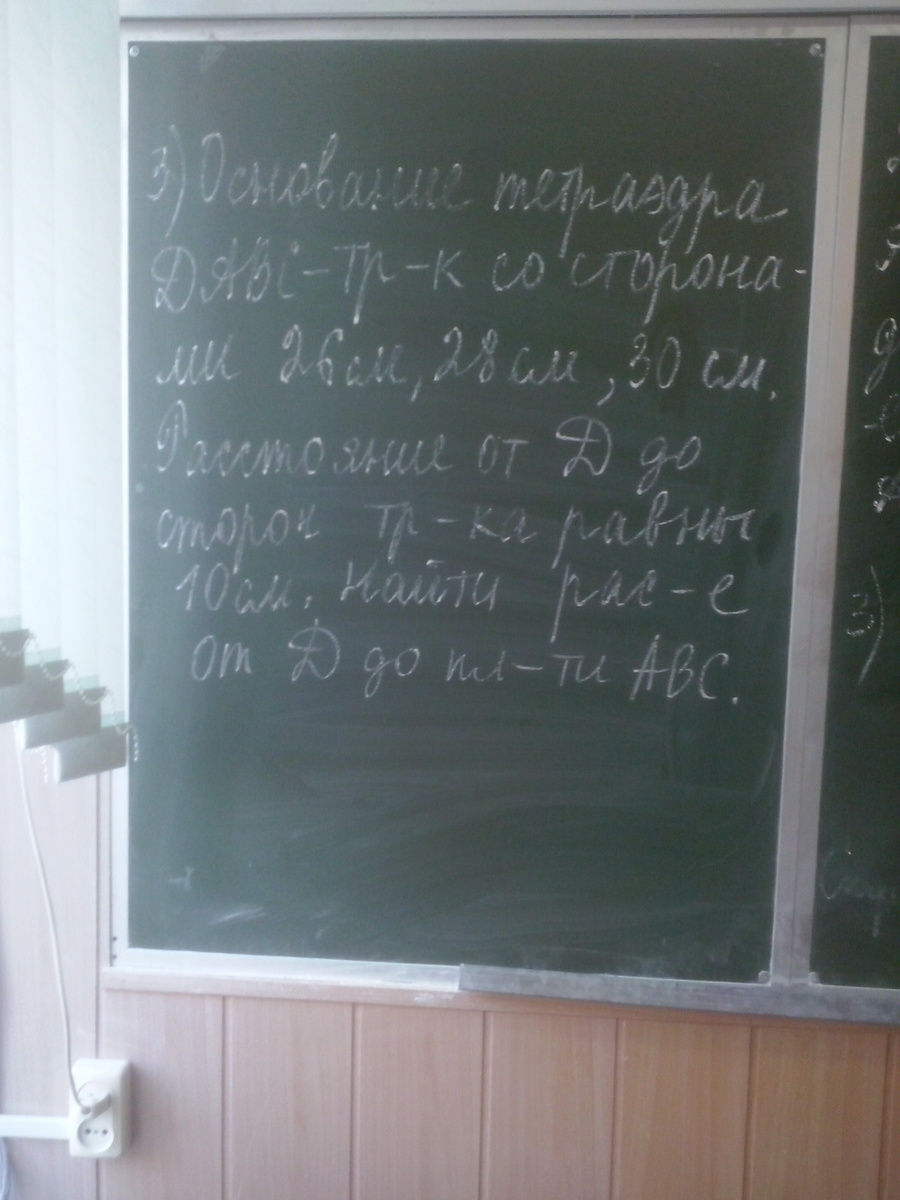 3) Основание тетраэдра
DАВС – тр-к со сторона-
ми 26 см, 28 см, 30 см.
Расстояние от D до
сторон тр-ка равны
10 см. Найти рас-е
от D до пл-ти АВС.
3)